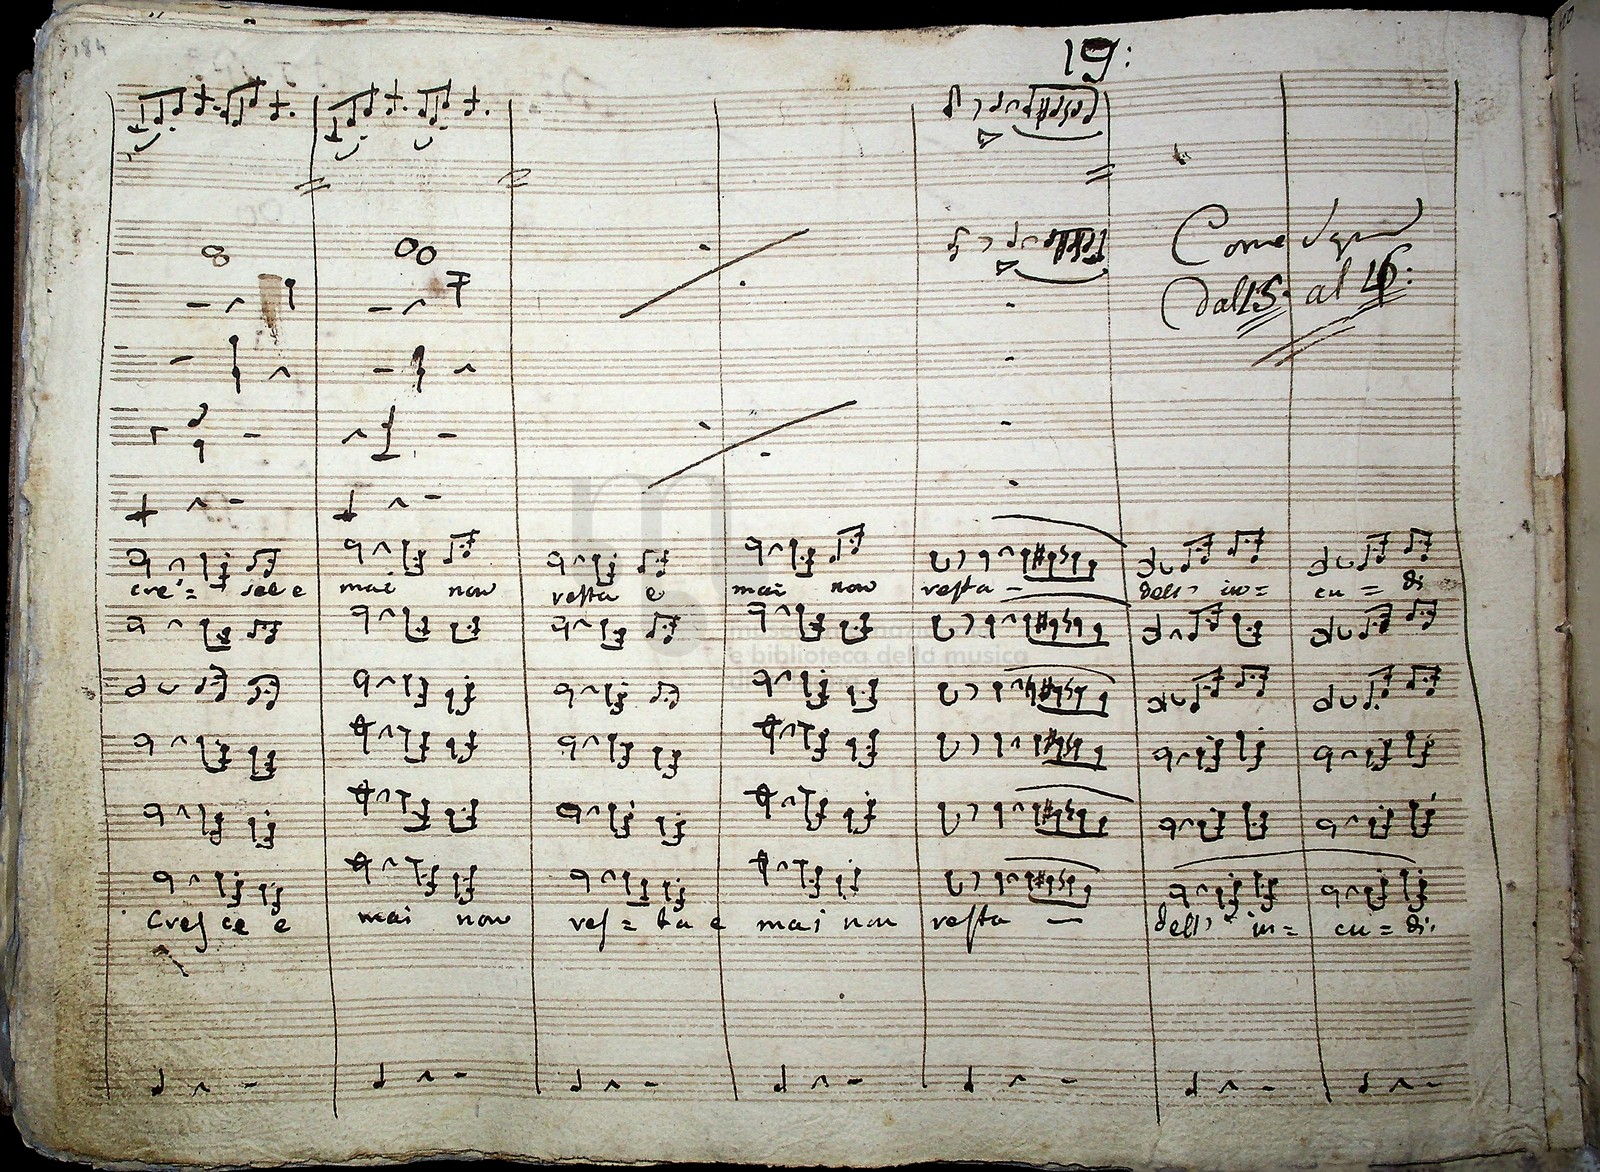 184
19:
Come Sopra
dal 15. al 16:
cre = sce e mai non resta e mai non resta - dell' in = cu = di
museo internazionale
e biblioteca della musica
Cresce e mai non res = ta e mai non resta — dell' in = cu = di.